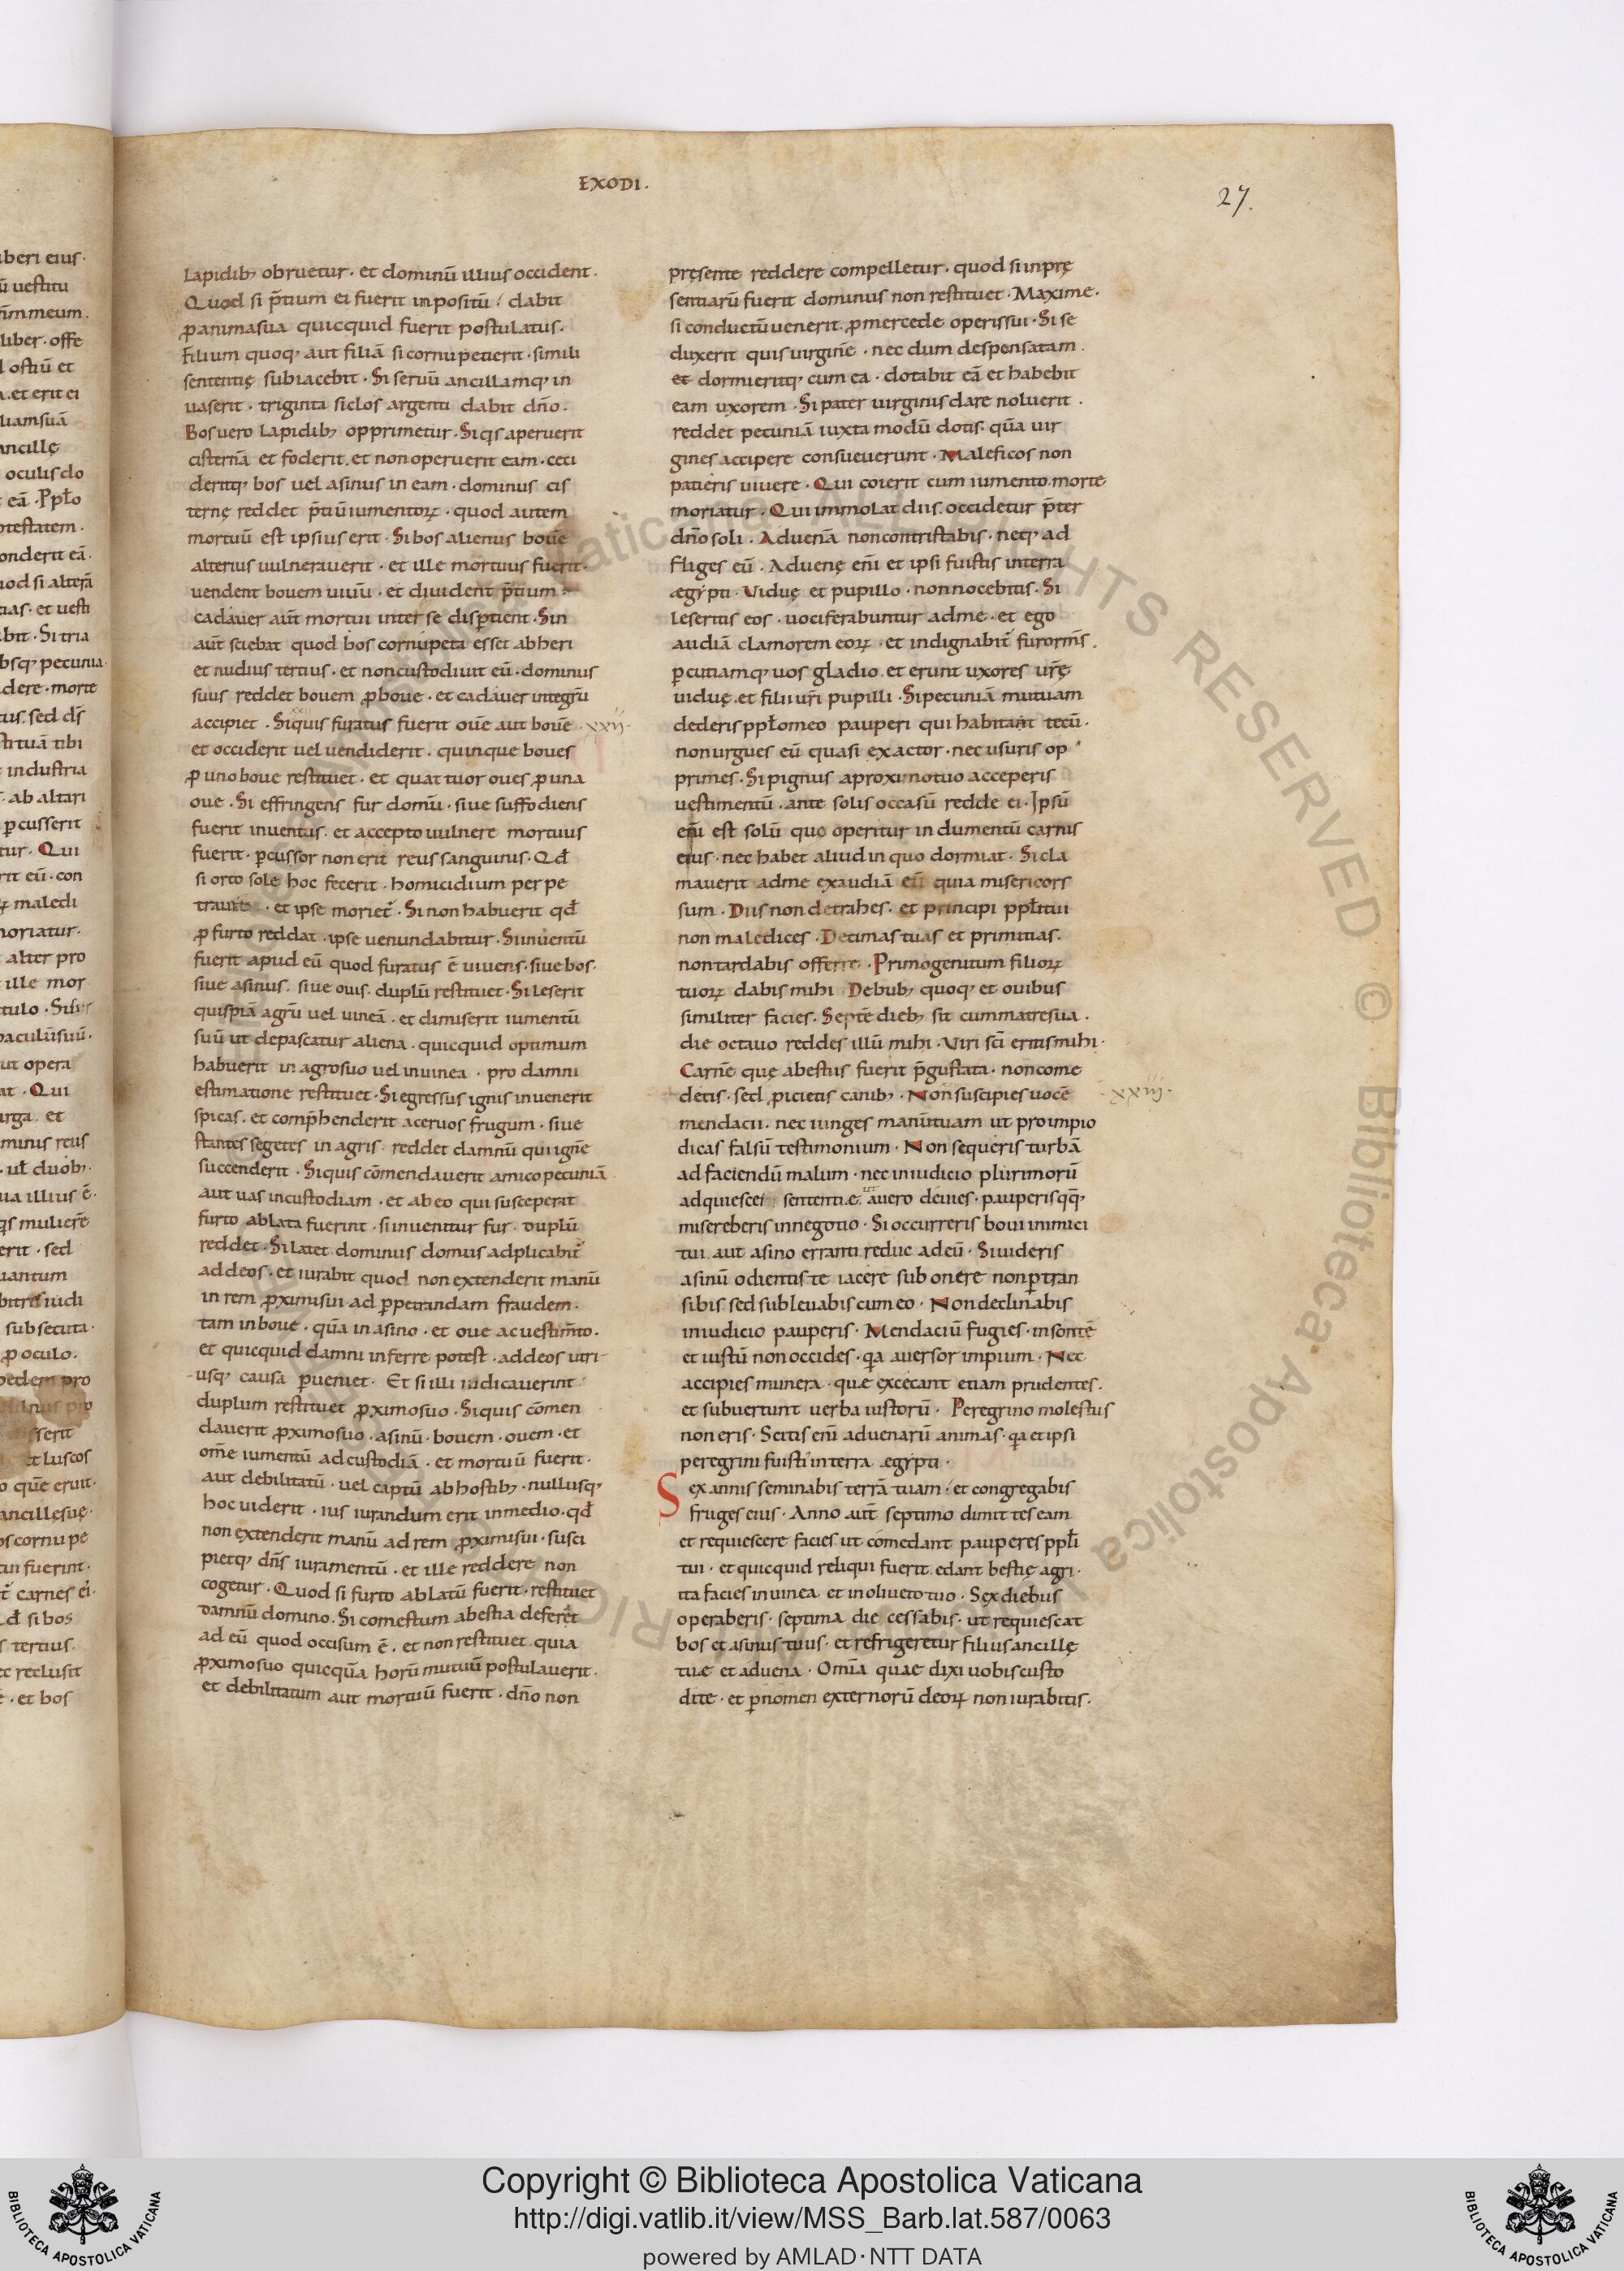 EXODI.
27.
Lapidib; obruetur · et dominū illius occident ·
Quod si p̄tium ei fuerit inpositū / dabit
ꝓ anima sua quicquid fuerit postulatus ·
Filium quoq; aut filiā si cornu petierit · simili
sententię subiacebit · Si seruū ancillamq; in
uaserit · triginta siclos argenti dabit dn̄o ·
Bos uero lapidib; opprimetur · Si q̄s aperuerit
cisternā et foderit · et non operuerit eam · ceci
deritq; bos uel asinus in eam · dominus cis
ternę reddet p̄tiū iumentoꝝ · quod autem
mortuū est ipsius erit · Si bos alienus bouē
alterius uulnerauerit · et ille mortuus fuerit ·
uendent bouem uiuū · et diuident p̄tium ·
cadauer aut̄ mortui inter se disꝑtient · Sin
aut̄ sciebat quod bos cornupeta esset ab heri
et nudius tertius · et non custodiuit eū · dominus
suus reddet bouem ꝓ boue · et cadauer integrū
accipiet · Si quis furatus fuerit ouē aut bouē · xxii ·
et occiderit uel uendiderit · quinque boues
ꝓ uno boue restituet · et quattuor oues ꝓ una
oue · Si effringens fur domū · siue suffodiens
fuerit inuentus · et accepto uulnere mortuus
fuerit · ꝑcussor non erit reus sanguinis · Qđ
si orto sole hoc fecerit · homicidium perpe
trauit · et ipse moriet̄ · Si non habuerit qđ
ꝓ furto reddat · ipse uenundabitur · Si inuentū
fuerit apud eū quod furatus ē uiuens · siue bos ·
siue asinus · siue ouis · duplū restituet · Si leserit
quispiā agrū uel uineā · et dimiserit iumentū
suū ut depascatur aliena · quicquid optimum
habuerit in agro suo uel in uinea · pro damni
estimatione restituet · Si egressus ignis inuenerit
spicas · et comp̄henderit aceruos frugum · siue
stantes segetes in agris · reddet damnū qui ignē
succenderit · Si quis cōmendauerit amico pecuniā
aut uas in custodiam · et ab eo qui susceperat
furto ablata fuerint · si inuenitur fur · duplū
reddet · Si latet dominus domus adplicabit̄
ad deos · et iurabit quod non extenderit manū
in rem ꝓximi sui · ad ꝑpetrandam fraudem ·
tam in boue · quā in asino · et oue ac uestim̄to ·
et quicquid damni inferre potest · ad deos utri-
-usq; causa ꝑueniet · Et si illi iudicauerint
duplum restituet ꝓximo suo · Si quis cōmen
dauerit ꝓximo suo · asinū · bouem · ouem · et
om̄e iumentū ad custodiā · et mortuū fuerit ·
aut debilitatū · uel captū ab hostib; · nullusq;
hoc uiderit · ius iurandum erit in medio · qđ
non extenderit manū ad rem ꝓximi sui · susci
pietq; dn̄s iuramentū · et ille reddere non
cogetur · Quod si furto ablatū fuerit · restituet
damnū domino · Si comestum a bestia deferet
ad eū quod occisum ē · et non restituet · quia
ꝓximo suo quicquā horū mutuū postulauerit ·
et debilitatum aut mortuū fuerit · dn̄o non
pręsente reddere compelletur · quod si in prę
sentiarū fuerit dominus non restituet · Maxime ·
si conductū uenerit · ꝓ mercede operis sui · Si se
duxerit quis uirginē · nec dum desponsatam ·
et dormieritq; cum ea · dotabit eā et habebit
eam uxorem · Si pater uirginis dare noluerit ·
reddet pecuniā iuxta modū dotis · quā uir
gines accipere consueuerunt · Maleficos non
patieris uiuere · Qui coierit cum iumento · morte
moriatur · Qui immolat diis · occidetur p̄ter
dn̄o soli · Aduenā non contristabis · neq; ad
fliges eū · Aduenę enī et ipsi fuistis in terra
ægypti · Viduę et pupillo · non nocebitis · Si
leseritis eos · uociferabuntur ad me · et ego
audiā clamorem eoꝝ · et indignabit̄ furor m̄s ·
ꝑcutiamq; uos gladio · et erunt uxores ur̄ę
uiduę · et filii ur̄i pupilli · Si pecuniā mutuam
dederis pplo meo pauperi qui habitat tecū ·
non urgues eū quasi exactor · nec usuris op
primes · Si pignus a proximo tuo acceperis
uestimentū · ante solis occasū redde ei · Ipsū
enī est solū quo operitur indumentū carnis
eius · nec habet aliud in quo dormiat · Si cla
mauerit ad me exaudiā eū quia misericors
sum · Diis non detrahes · et principi ppłi tui
non maledices · Decimas tuas et primitias ·
non tardabis offerre · Primogenitum filioꝝ
tuoꝝ dabis mihi · De bub; quoq; et ouibus
similiter facies · Septē dieb; sit cum matre sua ·
die octauo reddes illū mihi · Viri sc̄i eritis mihi ·
Carnē quę a bestiis fuerit p̄gustata · non come
detis · sed ꝓicietis canib; · Non suscipies uocē · xxiii ·
mendacii · nec iunges manū tuam ut pro impio
dicas falsū testimonium · Non sequeris turbā
ad faciendū malum · nec in iudicio plurimorū
adquiesces sententiæ · ut a uero deuies · pauperis qq;
misereberis in negotio · Si occurreris boui inimici
tui · aut asino erranti · reduc ad eū · Si uideris
asinū odientis te iacere sub onere non ꝑtran
sibis · sed subleuabis cum eo · Non declinabis
in iudicio pauperis · Mendaciū fugies · insontē
et iustū non occides · q̄a auersor impium · Nec
accipies munera · quæ excecant etiam prudentes ·
et subuertunt uerba iustorū · Peregrino molestus
non eris · Scitis enī aduenarū animas · q̄a et ipsi
peregrini fuistis in terra ægypti ·
Sex annis seminabis terrā tuam · et congregabis
fruges eius · Anno aut̄ septimo dimittes eam
et requiescere facies · ut comedant pauperes ppłi
tui · et quicquid reliqui fuerit · edant bestię agri ·
ita facies in uinea · et in oliueto tuo · Sex diebus
operaberis · septima die cessabis · ut requiescat
bos et asinus tuus · et refrigeretur filius ancillę
tuæ et aduena · Omīa quae dixi uobis custo
dite · et ꝑ nomen externorū deoꝝ non iurabitis ·
Copyright © Biblioteca Apostolica Vaticana
http://digi.vatlib.it/view/MSS_Barb.lat.587/0063
powered by AMLAD·NTT DATA
BIBLIOTECA APOSTOLICA VATICANA
BIBLIOTECA APOSTOLICA VATICANA